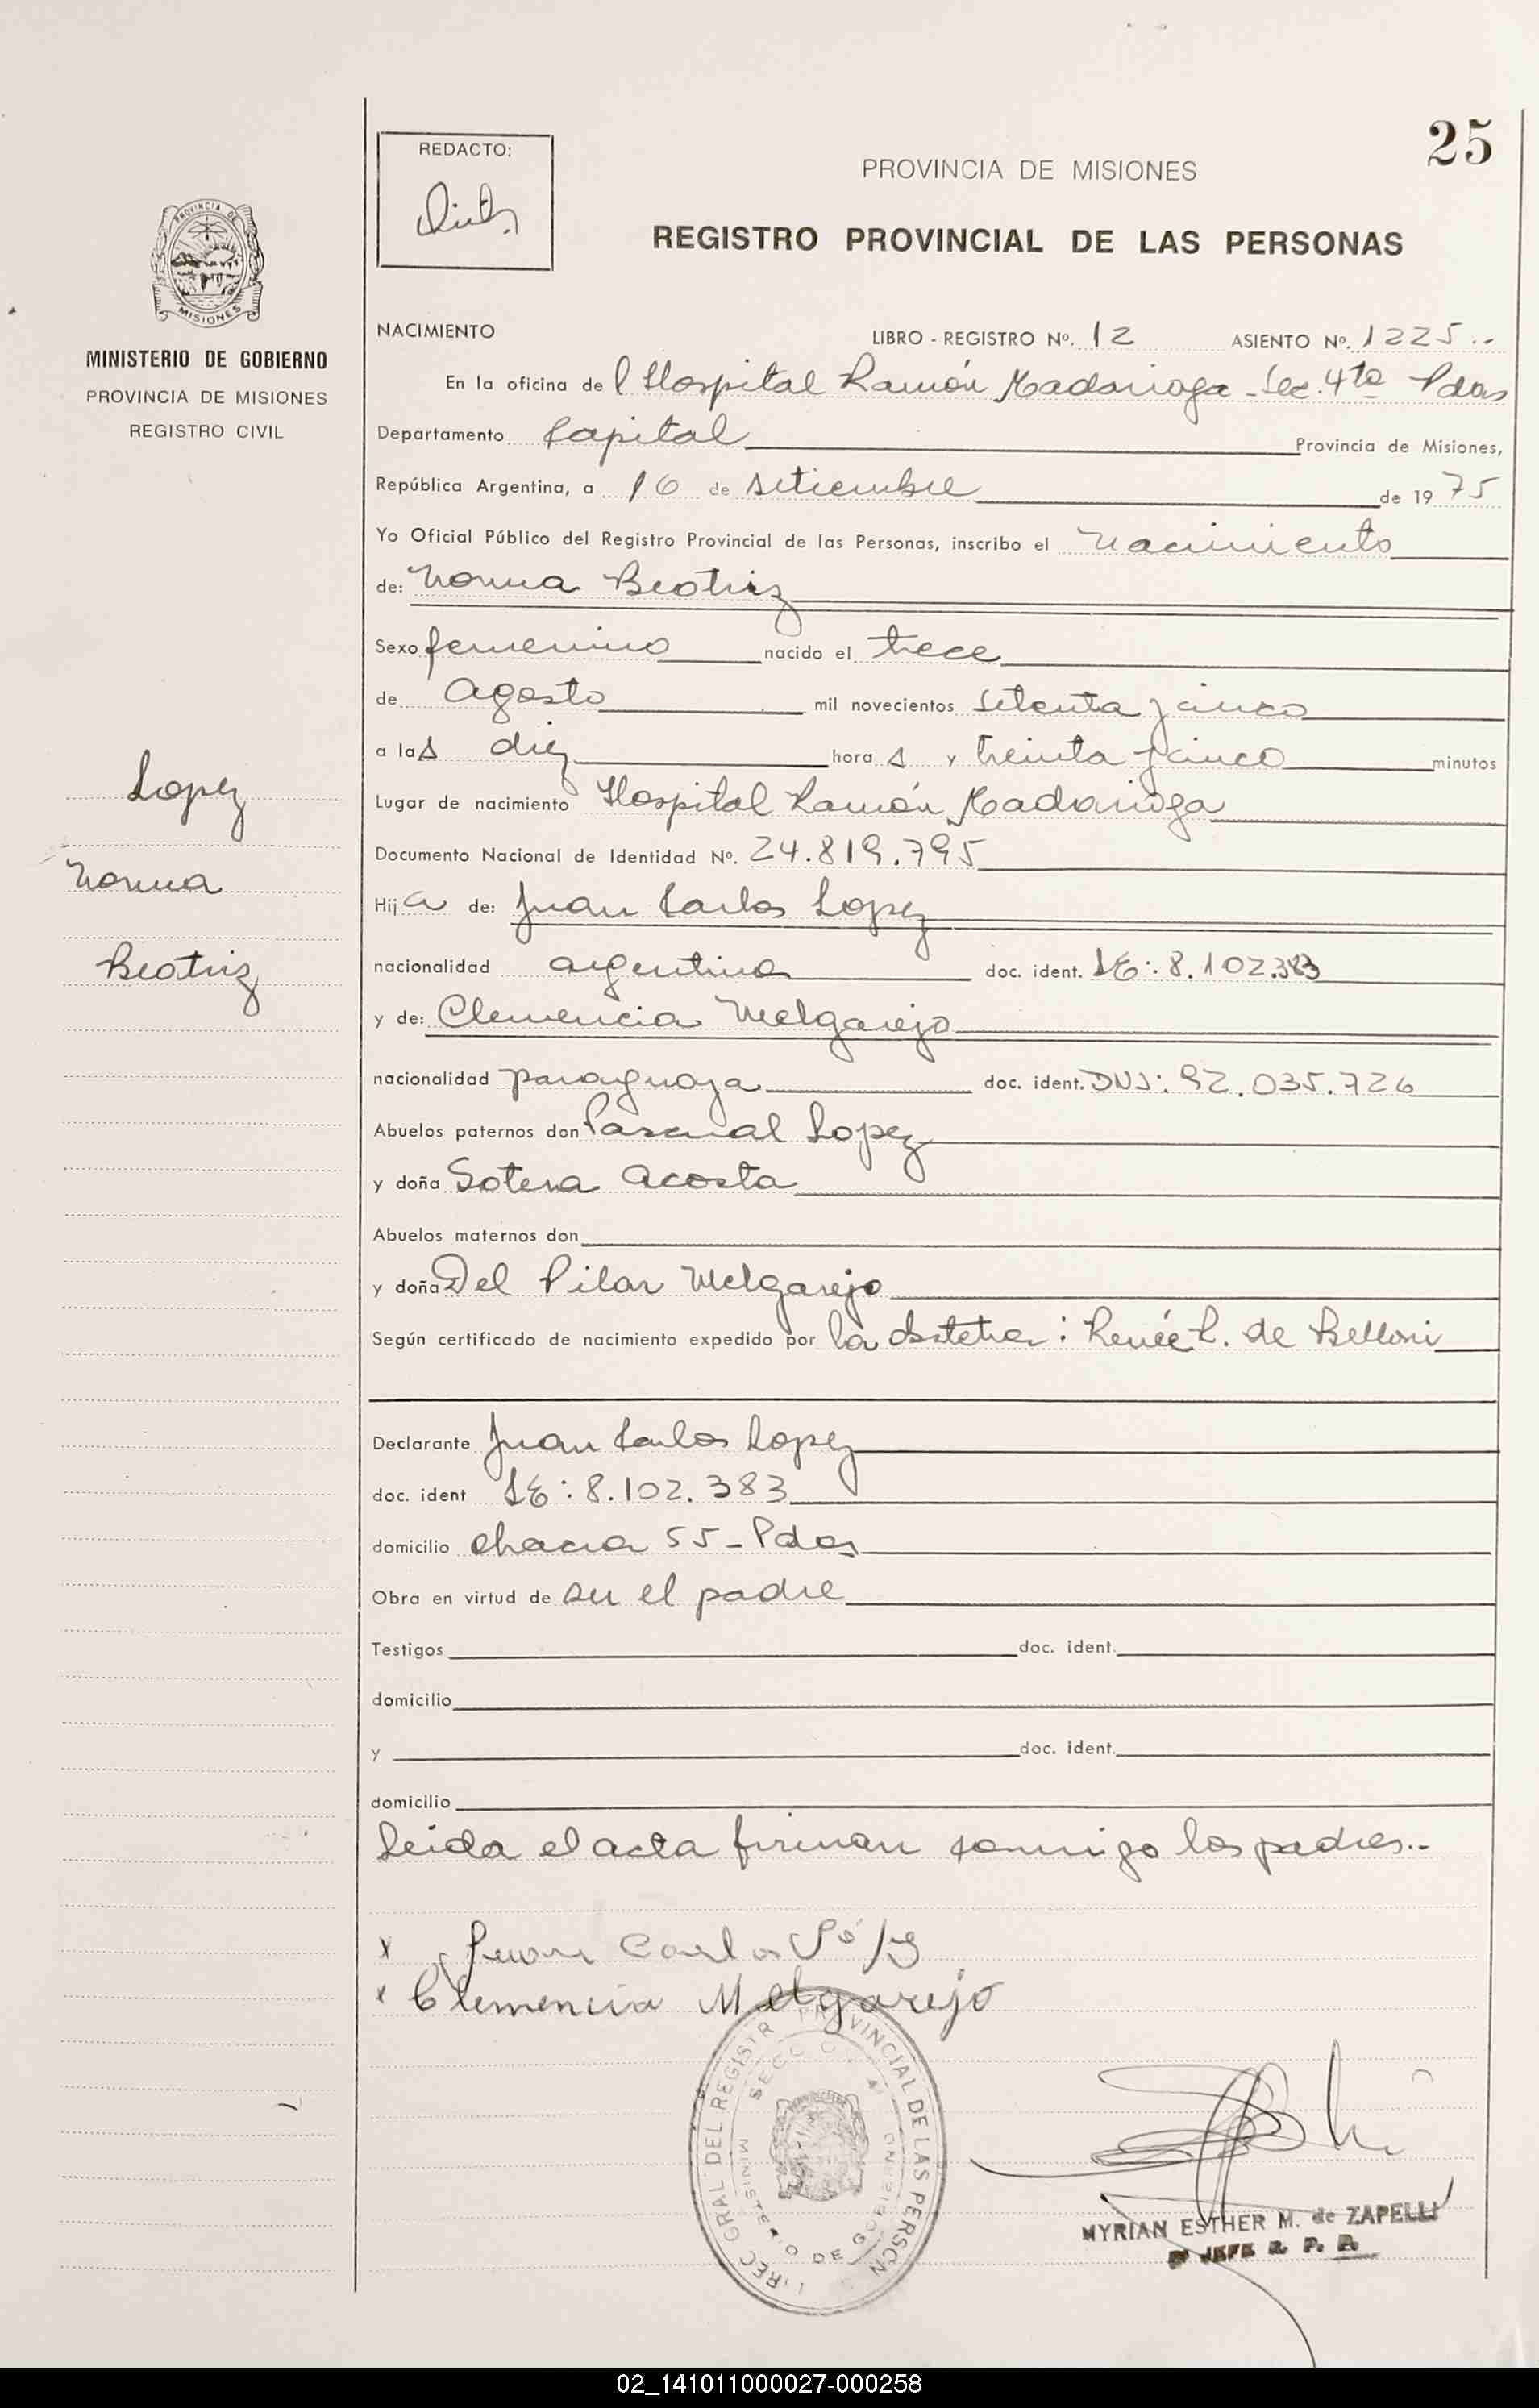 25
REDACTO:
PROVINCIA DE MISIONES
REGISTRO PROVINCIAL DE LAS PERSONAS
PROVINCIA DE
MISIONES
MINISTERIO DE GOBIERNO
PROVINCIA DE MISIONES
REGISTRO CIVIL
Lopez
Norma
Beatriz
NACIMIENTO LIBRO - REGISTRO Nº. 12 ASIENTO Nº. 1225..
En la oficina del Hospital Ramón Madariaga - Sec. 4ta Pdas
Departamento Capital Provincia de Misiones,
República Argentina, a 16 de setiembre de 1975
Yo Oficial Público del Registro Provincial de las Personas, inscribo el nacimiento
de: Norma Beatriz
Sexo femenino nacido el trece
de agosto mil novecientos setenta y cinco
a las diez horas y treinta y cinco minutos
Lugar de nacimiento Hospital Ramón Madariaga
Documento Nacional de Identidad Nº. 24.819.795
Hija de: Juan Carlos Lopez
nacionalidad argentina doc. ident. LE: 8.102.383
y de: Clemencia Melgarejo
nacionalidad paraguaya doc. ident. DNI: 92.035.726
Abuelos paternos don Pascual Lopez
y doña Sotera Acosta
Abuelos maternos don
y doña Del Pilar Melgarejo
Según certificado de nacimiento expedido por la obstetra: Renée R. de Belloni
Declarante Juan Carlos Lopez
doc. ident LE: 8.102.383
domicilio chacra 55 - Pdas
Obra en virtud de su el padre
Testigos doc. ident.
domicilio
y doc. ident.
domicilio
Leida el acta firman conmigo los padres..
x Juan Carlos López
x Clemencia Melgarejo
DIREC GRAL DEL REGISTR PROVINCIAL DE LAS PERSON
SECC 4ª
MINISTERIO DE GOBIERNO
MYRIAN ESTHER M. de ZAPELLI
JEFE R. P. P.
02_141011000027-000258